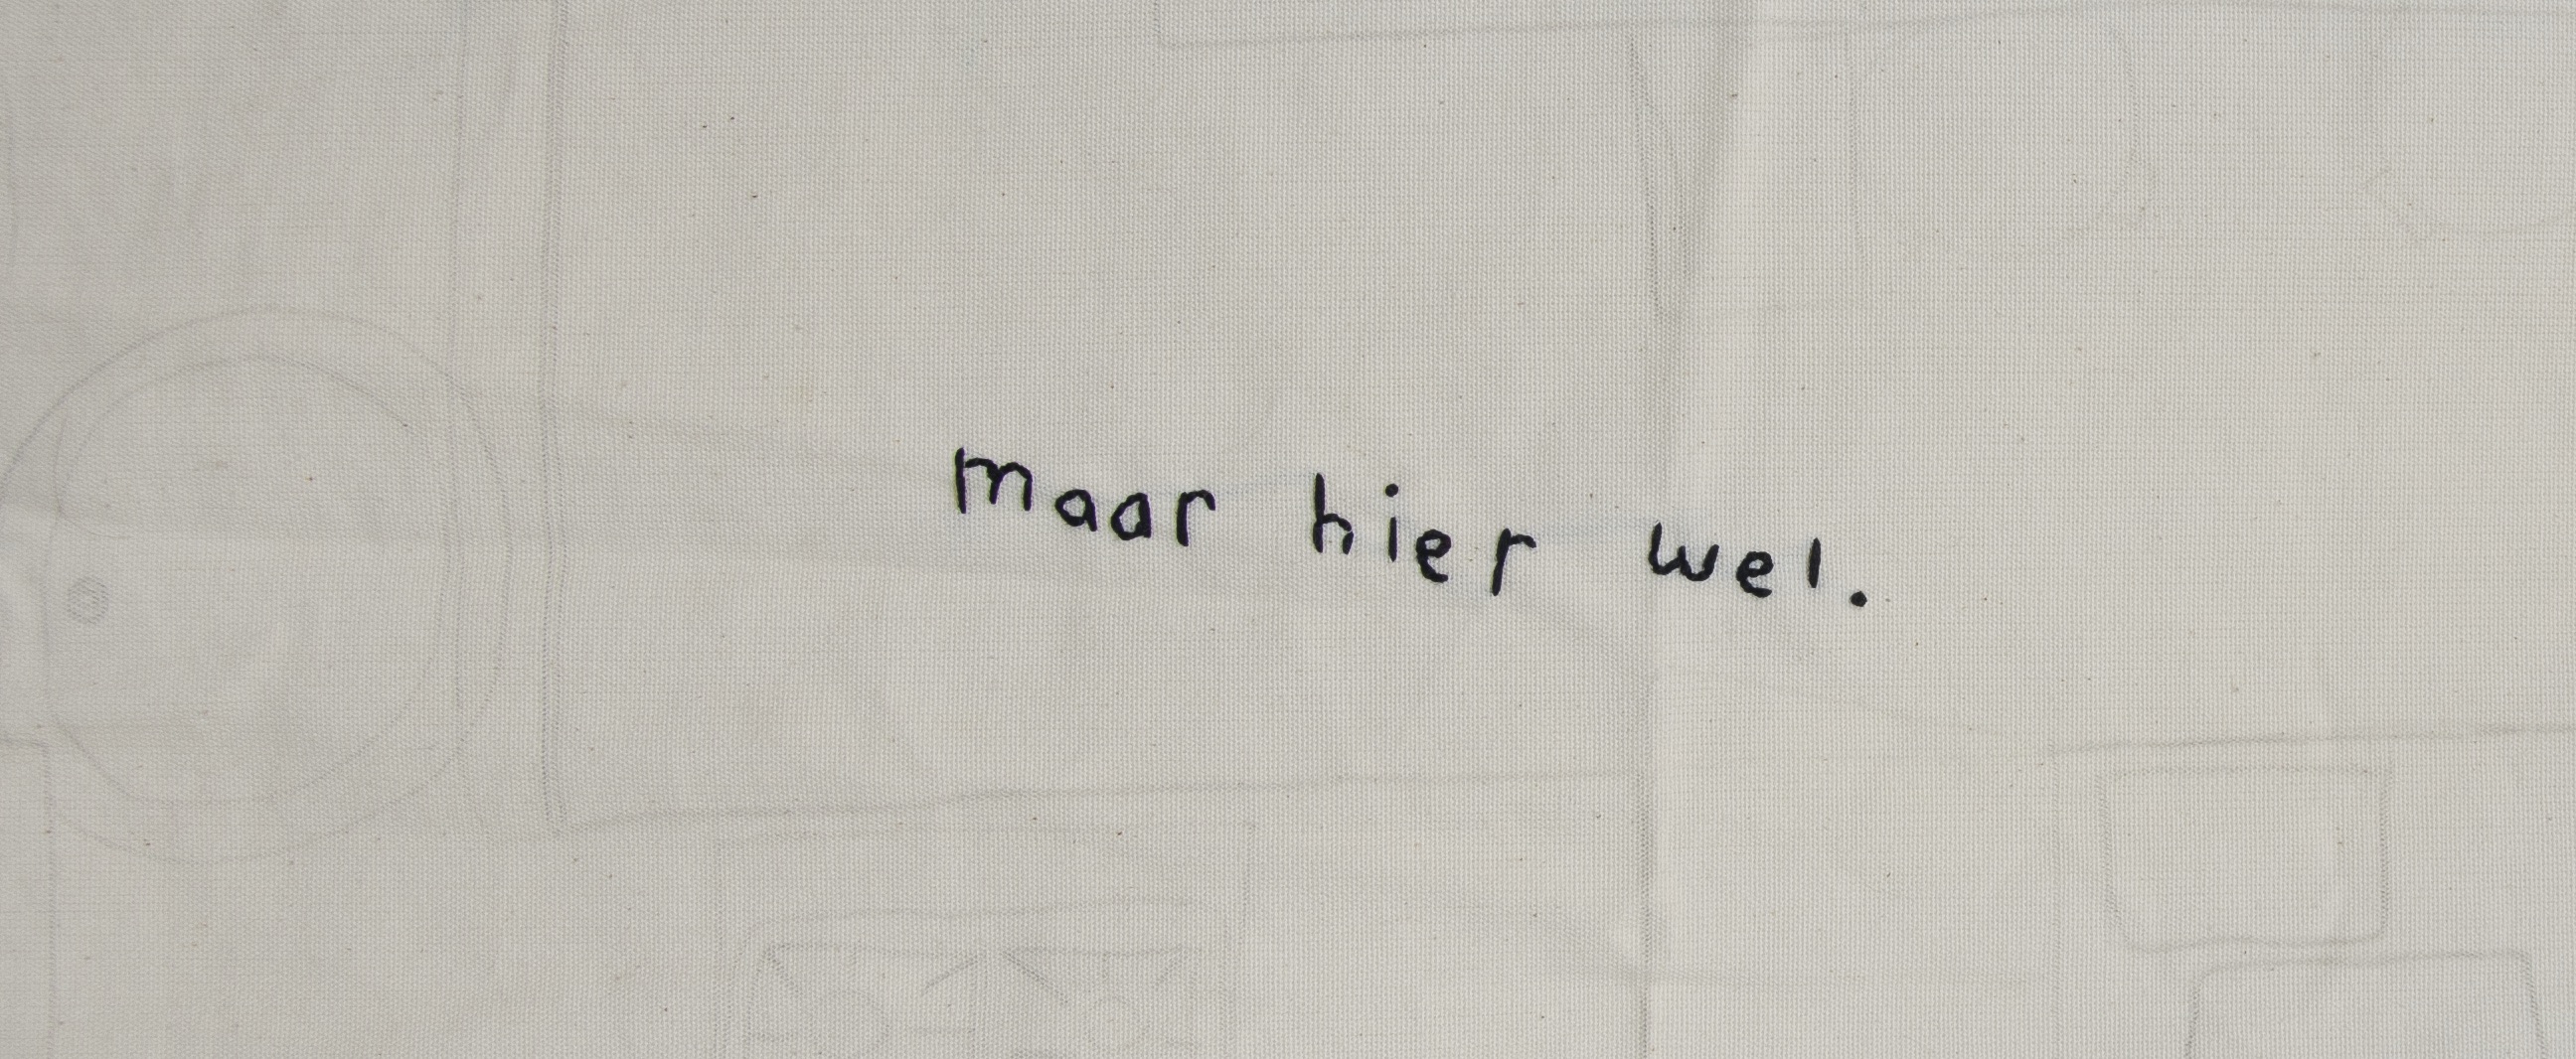 maar hier wel.